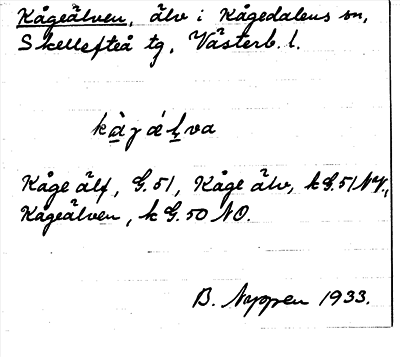 Kågeälven, älv i Kågedalens sn,
Skellefteå tg, Västerb. l.
kågälva
Kåge älf, G.51, Kåge älv, k G.51 NV.,
Kågeälven, k G.50 NO.
B. Nyppen 1933.